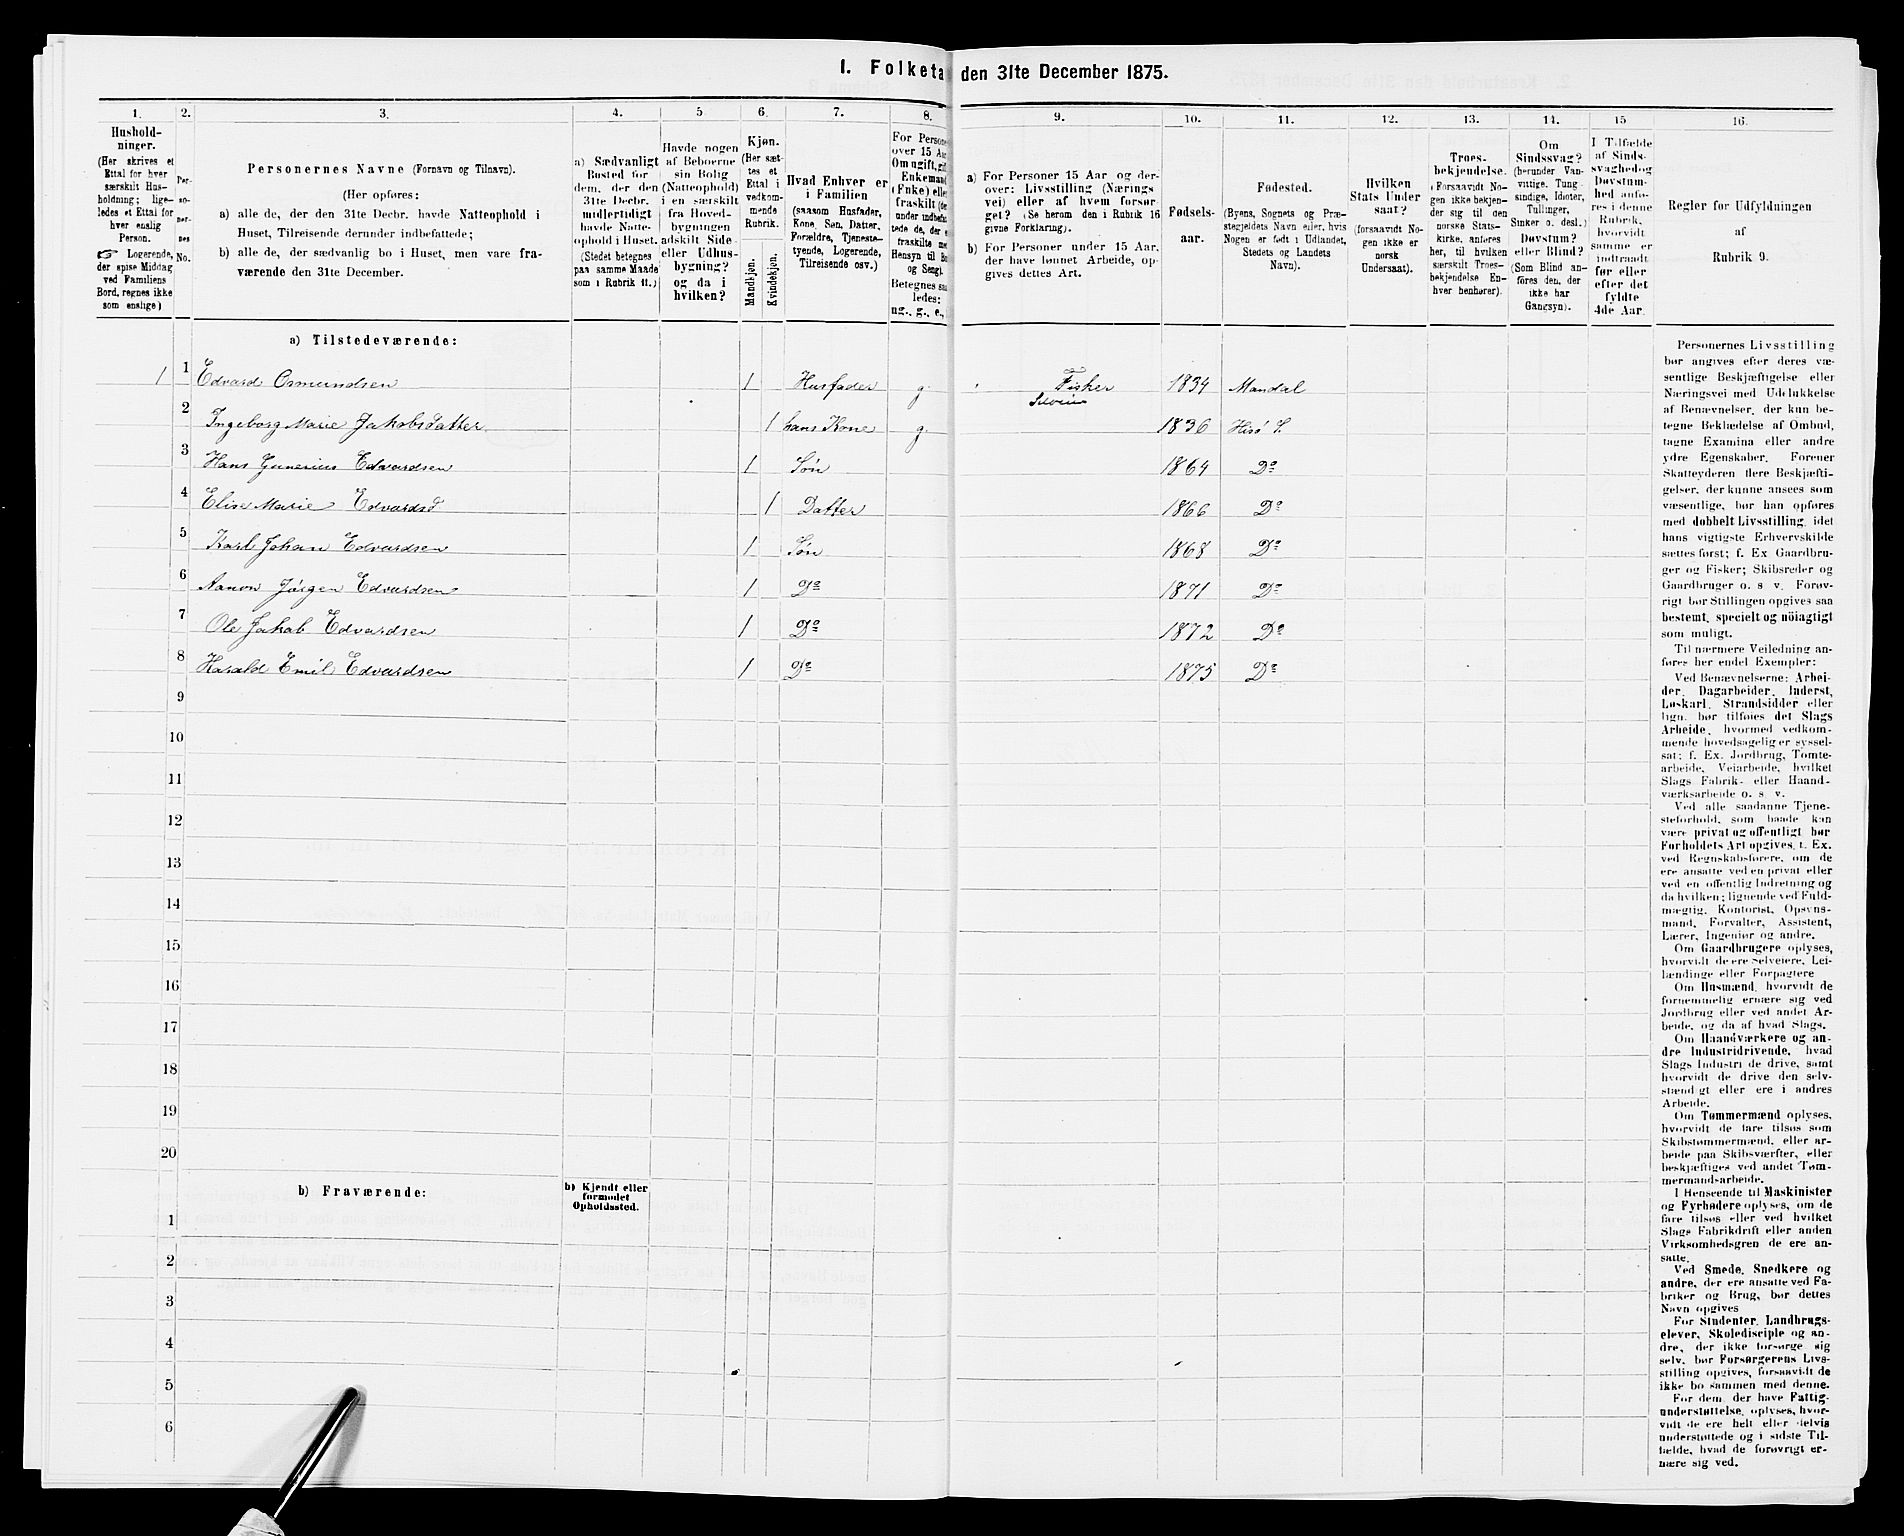 I. Folketa den 31te December 1875.
1.
Hushold-
ninger.
(Her skrives et
Ettal for hver
særskilt Hus-
holdning; lige-
ledes et Ettal for
hver enslig
Person.
☞ Logerende,
der spise Middag
ved Familiens
Bord, regnes ikke
som enslige)
2.
Per-
so-
ner-
nes
No.
3.
Personernes Navne (Fornavn og Tilnavn).
(Her opføres:
a) alle de, der den 31te Decbr. havde Natteophold i
Huset, Tilreisende derunder indbefattede;
b) alle de, der sædvanlig bo i Huset, men vare fra-
værende den 31te December.
4.
a) Sædvanligt
Bosted for
dem, der den
31te Decbr.
midlertidigt
havde Natte-
ophold i Huset.
(Stedet betegnes
paa samme Maade
som i Rubrik 11.)
5
Havde nogen
af Beboerne
sin Bolig
(Natteophold)
i en særskilt
fra Hoved-
bygningen
adskilt Side-
eller Udhus-
bygning?
og da i
hvilken?
6.
Kjøn.
(Her sæt-
tes et
Ettal i
vedkom-
mende
Rubrik.
Mandkjøn.
Kvindekjøn.
7.
Hvad Enhver er
i Familien
(saasom Husfader,
Kone, Søn, Datter,
Forældre, Tjeneste-
tyende, Logerende,
Tilreisende osv.)
8.
For Persone
over 15 Aa
Om ugift, gif
Enkemand
(Enke) elle
fraskilt (de
under indbefat
tede de, der e
fraskilte me
Hensyn til Bo
og Seng).
Betegnes saa
ledes:
ug., g., e.,
9.
a) For Personer 15 Aar og der-
over: Livsstilling (Nærings
vei) eller af hvem forsør-
get? (Se herom den i Rubrik 16
givne Forklaring).
b) For Personer under 15 Aar,
der have lønnet Arbeide, op-
gives dettes Art.
10.
Fødsels-
aar.
11.
Fødested.
(Byens, Sognets og Præ-
stegjeldets Navn eller, hvis
Nogen er født i Udlandet,
Stedets og Landets
Navn).
12.
Hvilken
Stats Under
saat?
(forsaavidt No-
gen ikke er
norsk
Undersaat).
13.
Troes-
bekjendelse.
(Forsaavidt No-
gen ikke bekjen-
der sig til den
norske Stats-
kirke, anføres
her, til hvilken
særskilt Troes-
bekjendelse En-
hver henhører).
14.
Om
Sindssvag?
(herunder Van-
vittige, Tung-
sindige, Idioter,
Tullinger,
Sinker o. desl.)
Døvstum?
eller Blind?
(Som Blind an-
føres den, der
ikke har
Gangsyn).
15
I Tilfælde
af Sinds-
svaghed og
Døvstum-
hed anfø-
res i denne
Rubrik,
hvorvidt
samme er
indtraadt
før eller
efter det
fyldte
4de Aar.
16.
Regler for Udfyldningen
af
Rubrik 9.
a) Tilstedeværende:
1 1 Edvard Osmundsen 1 Husfader g. Fisker 1834 Mandal
2 Ingeborg Marie Jakobsdatter 1 hans Kone g. 1836 Hisö S.
3 Hans Gunerius Edvardsen 1 Søn 1864 Do
4 Elise Marie Edvardsd 1 Datter 1866 Do
5 Karl Johan Edvardsen 1 Søn 1868 Do
6 Aanon Jörgen Edvardsen 1 Do 1871 Do
7 Ole Jakob Edvardsen 1 Do 1872 Do
8 Harald Emil Edvardsen 1 Do 1875 Do
9
10
11
12
13
14
15
16
17
18
19
20
b) Fraværende:
b) Kjendt eller
formodet
Opholdssted.
1
2
3
4
5
6
Personernes Livsstilling
bør angives efter deres væ-
sentlige Beskjæftigelse eller
Næringsvei med Udelukkelse
af Benævnelser, der kun be-
tegne Beklædelse af Ombud,
tagne Examina eller andre
ydre Egenskaber. Forener
Skatteyderen flere Beskjæfti-
gelser, der kunne ansees som
væsentlige, bør han opføres
med dobbelt Livsstilling, idet
hans vigtigste Erhvervskilde
sættes først; f. Ex Gaardbru-
ger og Fisker; Skibsreder og
Gaardbruger o. s v. Forøv-
rigt bør Stillingen opgives saa
bestemt, specielt og nöiagtigt
som muligt.
Til nærmere Veiledning an-
føres her endel Exempler:
Ved Benævnelserne: Arbei-
der, Dagarbeider, Inderst,
Løskarl, Strandsidder eller
lign. bør tilføies det Slags
Arbeide, hvormed vedkom-
mende hovedsagelig er syssel-
sat; f. Ex. Jordbrug, Tomte-
arbeide, Veiarbeide, hvilket
Slags Fabrik- eller Haand-
værksarbeide o. s. v.
Ved alle saadanne Tjene-
steforhold, som baade kan
være privat og offentligt bør
Forholdets Art opgives, t. Ex.
ved Regnskabsførere, om de
ere ansatte ved en privat eller
ved en offentlig Indretning og
da hvilken; lignende ved Fuld-
mægtig, Kontorist, Opsyns-
mand, Forvalter, Assistent,
Lærer, Ingeniør og andre.
Om Gaardbrugere oplyses,
hvorvidt de ere Selveiere, Lei-
lændinge eller Forpagtere
Om Husmænd, hvorvidt de
fornemmelig ernære sig ved
Jordbrug eller ved andet Ar-
beide, og da af hvad Slags.
Om Haandværkere og an-
dre Industridrivende, hvad
Slags Industri de drive, samt
hvorvidt de drive den selv-
stændigt eller ere i andres
Arbeide.
Om Tømmermænd oplyses,
hvorvidt de fare tilsøs som
Skibstømmermænd, eller ar-
beide paa Skibsværfter, eller
beskjæftiges ved andet Tøm-
mermandsarbeide.
I Henseende til Maskinister
og Fyrbødere oplyses, om de
fare tilsøs eller ved hvilket
Slags Fabrikdrift eller anden
Virksomhedsgren de ere an-
satte.
Ved Smede, Snedkere og
andre, der ere ansatte ved Fa-
briker og Brug, bør dettes
Navn opgives
For Studenter, Landbrugs-
elever, Skoledisciple og an-
dre, der ikke forsørge sig
selv, bør Forsørgerens Livs-
stilling opgives, forsaavidt de
ikke bo sammen med denne.
For dem, der have Fattig-
understøttelse, oplyses, hvor-
vidt de ere helt eller delvis
understøttede og i sidste Til-
fælde, hvad de forøvrigt er-
nære sig ved.